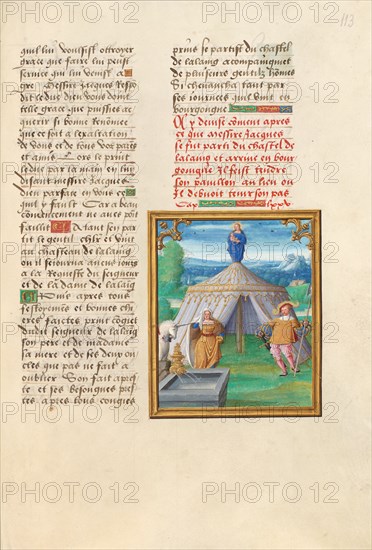 113
quil luy voulsist ottroyer
grace que faire luy peust
service qui luy venist a
gre Messire Jacques respo
dit le duc dieu vous doint
telle grace que puissies ac
querir si bonne renomee
que ce soit a lexaltacion
de vous et de tous vos parens
et amis Lors le print
le duc par la main en luy
disant messire Jacques
dieu parface en vous ce
quil y fault Car a beau
comencement ne aves pas
failly A tant son par
tit le gentil chlr et vint
au chasteau de lalaing
ou il seiourna aucuns iours
a la requeste du seigneur
et de la dame de lalaing
Puis apres tous
festoyemens et bonnes chi
eres faictes print congie
dudit seigneur de lalaing
son pere et de madame
sa mere et de ses deux on
cles que pas ne fait a
oublier Son fait apres
te et ses besongnes pres
tes apres tous congies
prins se partist du chastel
de lalaing acompaignet
de plusieurs gentilz homes
Si chevaucha tant par
ses iournees quil vint en
bourgongne
Cy devise coment apres
ce que messire Jacques
se fut party du chastel de
lalaing et arrive en bour
gongne il feist tendre
son pavillon au lieu ou
il debvoit tenir son pas
Cap
PHOTO 12